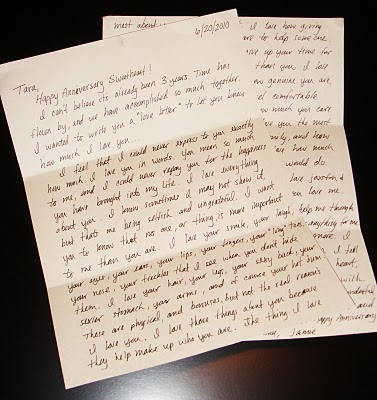 6/20/2010
Tara,
Happy Anniversary Sweetheart!
I can't believe its already been 3 years. Time has
flown by, and we have accomplished so much together.
I wanted to write you a "love letter" to let you know
how much I love you...
I feel that I could never express to you exactly
how much I love you in words. You mean so much
to me, and I could never repay you for the happiness
you have brought into my life. I love everything
about you. I know sometimes I may not show it,
but thats me being selfish and ungrateful. I want
you to know that no one, or thing, is more important
to me than you are. I love your smile, your laugh,
your eyes, your ears, your lips, your fingers, your long toes,
your nose, your freckles that I see when you don't hide
them. I love your hair, your legs, your silky back, your
sexier stomach, your arms, and of course your hot bum.
Those are physical, and bonuses, but not the real reasons
I love you. I love those things about you because
they help make up who you are. The thing I love
most about
I love how giving
are to help someone
give up your time for
than you. I love
how genuine you are,
feel comfortable
how much you care
love you the most
and how
how much
would do
love
love me
help me through
anything for me
more. I
I feel
heart,
with
and
Happy Anniversary
Jamie